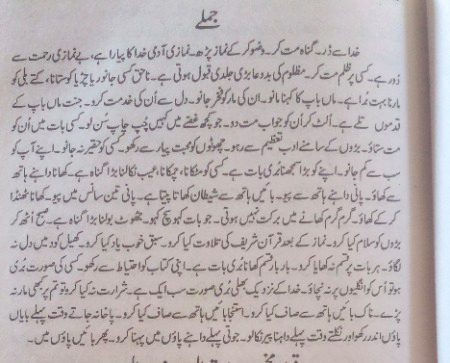 جملے
خدا سے ڈر۔ گناہ مت کر۔ وضو کر کے نماز پڑھ۔ نمازی آدمی خدا کا پیارا ہے، بے نمازی رحمت سے
دُور ہے۔ کسی پر ظلم مت کر۔ مظلوم کی بددعا بڑی جلدی قبول ہوتی ہے۔ ناحق کسی جانور یا چڑیا کو ستانا، کتے بلی کو
مارنا بہت بُرا ہے۔ ماں باپ کا کہنا مانو۔ ان کی مار کو فخر جانو۔ دل سے اُن کی خدمت کرو۔ جنت ماں باپ کے
قدموں تلے ہے۔ اُلٹ کر اُن کو جواب مت دو۔ جو کچھ غصے میں کہیں چپ چاپ سُن لو۔ کسی بات میں اُن کو
مت ستاؤ۔ بڑوں کے سامنے ادب تعظیم سے رہو۔ چھوٹوں کو محبت پیار سے رکھو۔ کسی کو حقیر نہ جانو۔ اپنے آپ کو
سب سے کم جانو۔ اپنے کو بڑا سمجھنا بُری بات ہے۔ کسی کو مٹکانا، چمکانا، عیب نکالنا بڑا گناہ ہے۔ کھانا داہنے ہاتھ
سے کھاؤ۔ پانی داہنے ہاتھ سے پیو۔ بائیں ہاتھ سے شیطان کھاتا پیتا ہے۔ پانی تین سانس میں پیو۔ کھانا ٹھنڈا
کر کے کھاؤ۔ گرم گرم کھانے میں برکت نہیں ہوتی۔ جو بات کہو سچ کہو۔ جھوٹ بولنا بڑا گناہ ہے۔ صبح اُٹھ کر
بڑوں کو سلام کیا کرو۔ نماز کے بعد قرآن شریف کی تلاوت کیا کرو۔ سبق خوب یاد کیا کرو۔ کھیل کود میں دل نہ
لگاؤ۔ ہر بات پر قسم نہ کھایا کرو۔ بار بار قسم کھانا بُری بات ہے۔ اپنی کتاب کو احتیاط سے رکھو۔ کسی کی صورت بُری
ہو تو اُس کو انگلیوں پر نہ نچاؤ۔ خدا کے نزدیک بھلی بُری صورت سب ایک ہے۔ شرارت نہ کیا کرو تو تم پر کبھی مار نہ
پڑے۔ ناک بائیں ہاتھ سے صاف کیا کرو۔ استنجا بائیں ہاتھ سے صاف کیا کرو۔ پاخانہ جاتے وقت پہلے بایاں
پاؤں اندر رکھو اور نکلتے وقت پہلے داہنا پیر نکالو۔ جوتی پہلے داہنے پاؤں میں پہنا کرو۔ پھر بائیں پاؤں میں۔